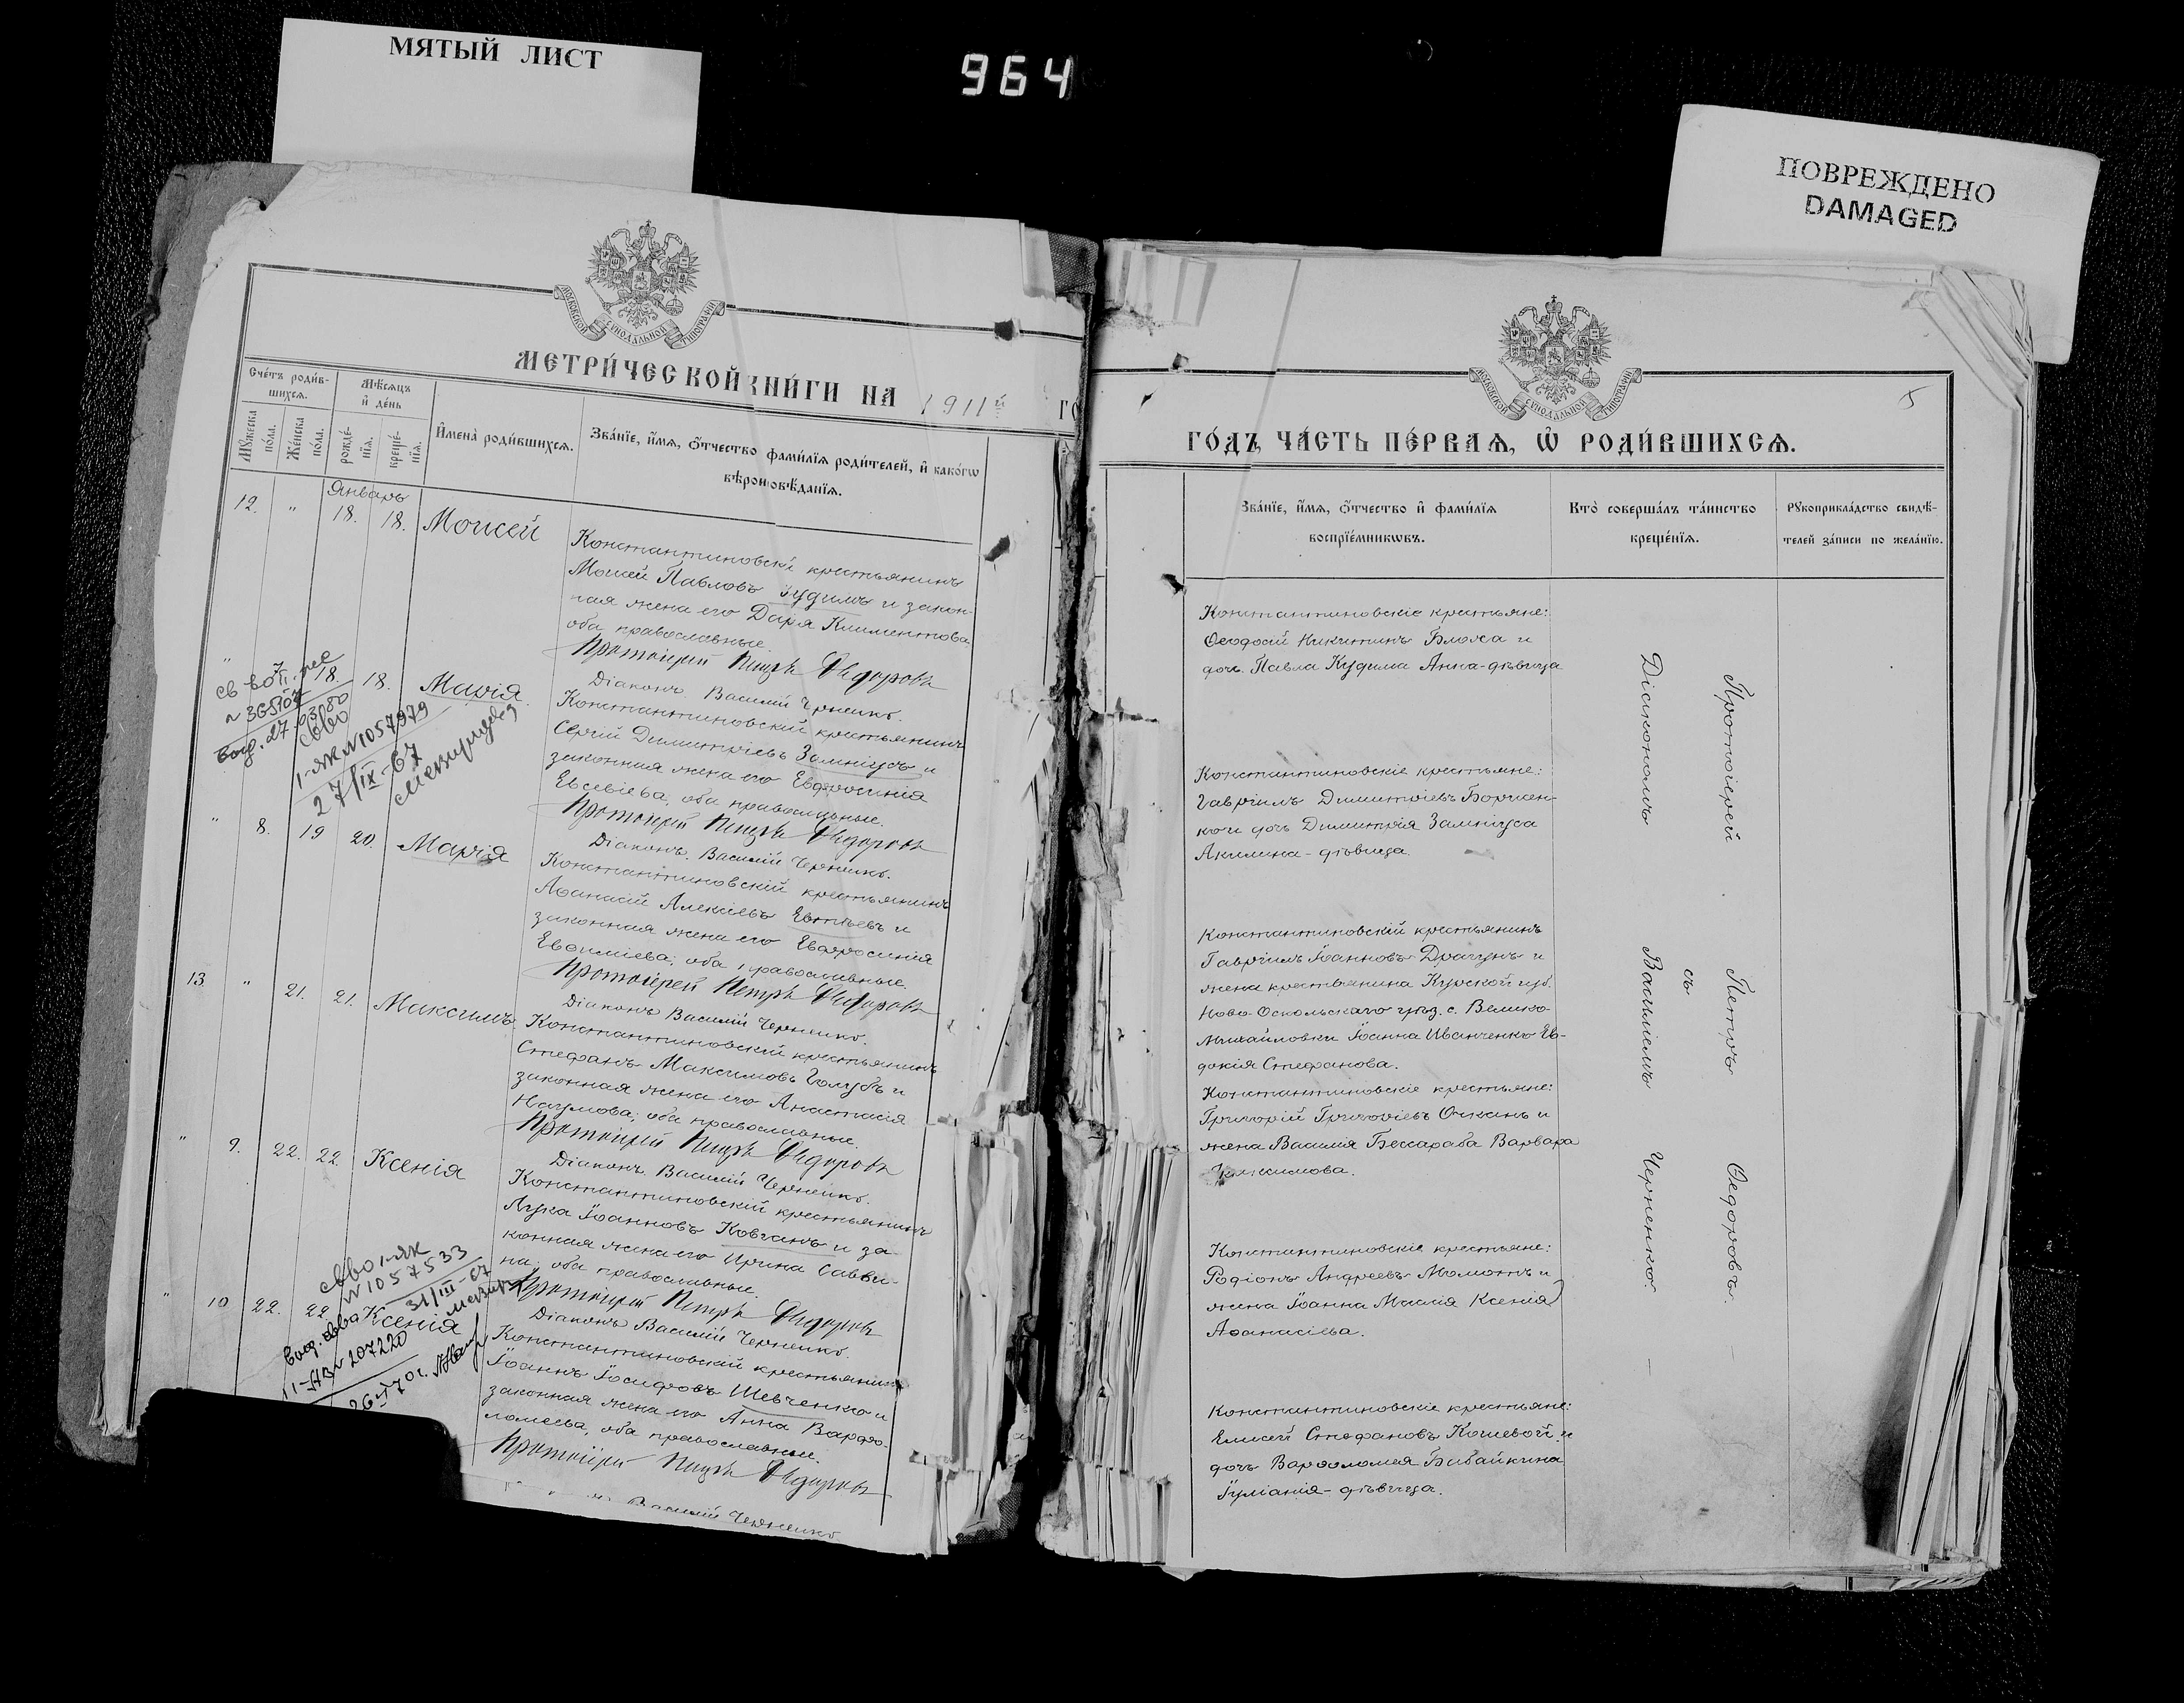 МЯТЫЙ ЛИСТ
964
ПОВРЕЖДЕНО
DAMAGED
МОСКОВСКОЙ СУНОДАЛЬНОЙ ТИПОГРАФИИ
МЕТРИ́ЧЕСКОЙ КНИ́ГИ НА 1911й
Сче́тъ роди́в-
шихсѧ.
Мꙋ́жеска
по́ла.
Же́нска
по́ла.
Мѣ́сѧцъ
и҆ де́нь
рожде́-
нїѧ.
креще́-
нїѧ.
И҆мена̀ роди́вшихсѧ.
Зва́нїе, и҆́мѧ, ѻ҆́тчество фами́лїѧ роди́телей, и҆ како́гѡ
вѣроисповѣ́данїѧ.
Январь
12. " 18. 18. Моисей
Константиновскій крестьянинъ
Моисей Павловъ Кудимъ и закон-
ная жена его Дарія Климентова
оба православные.
Протоіерей Петръ Ѳедоровъ
Діаконъ Василій Черненко.
" 7 18. 18. Марія
Константиновскій крестьянинъ
Сергій Димитріевъ Замніусъ и
законная жена его Евфросинія
Евсевіева, оба православные.
Протоіерей Петръ Ѳедоровъ
Діаконъ Василій Черненко.
I-ЯК N1057979
27/IX-67
" 8. 19 20. Марія
Константиновскій крестьянинъ
Аѳанасій Алексіевъ Евтѣевъ и
законная жена его Евфросинія
Евѳиміева; оба православные.
Протоіерей Петръ Ѳедоровъ
Діаконъ Василій Черненко.
13. " 21. 21. Максимъ
Константиновскій крестьянинъ
Стефанъ Максимовъ Голубъ и
законная жена его Анастасія
Наумова; оба православные.
Протоіерей Петръ Ѳедоровъ
Діаконъ Василій Черненко.
" 9. 22. 22. Ксенія
Константиновскій крестьянинъ
Лука Іоанновъ Ковганъ и за-
конная жена его Ирина Савви-
на; оба православные.
Протоіерей Петръ Ѳедоровъ
Діаконъ Василій Черненко.
N1057533
31/III-67
" 10 22. 22. Ксенія
Константиновскій крестьянинъ
Іоаннъ Іосифовъ Шевченко и
законная жена его Анна Варфо-
ломеева, оба православные.
Протоіерей Петръ Ѳедоровъ
Василій Черненко
207220
5
МОСКОВСКОЙ СУНОДАЛЬНОЙ ТИПОГРАФИИ
ГО́ДЪ, ЧА́СТЬ ПЕ́РВАѦ, Ѡ҆ РОДИ́ВШИХСѦ.
Зва́нїе, и҆́мѧ, ѻ҆́тчество и҆ фами́лїѧ
воспрїе́мникѡвъ.
Кто̀ соверша́лъ та́инство
креще́нїѧ.
Рꙋкоприкла́дство свидѣ́-
телей за́писи по жела́нїю.
Константиновскіе крестьяне:
Ѳеодосій Никитинъ Блоха и
дочь Павла Кудима Анна-дѣвица
Константиновскіе крестьяне:
Гавріилъ Димитріевъ Борисен-
ко и дочь Димитрія Замніуса
Акилина-дѣвица.
Константиновскій крестьянинъ
Гавріилъ Іоанновъ Драгунъ и
жена крестьянина Курской губ.
Ново-Оскольскаго уѣзд. с. Велико-
Михайловки Іоанна Иванченко Ев-
докія Стефанова.
Константиновскіе крестьяне:
Григорій Григоріевъ Очканъ и
жена Василія Бессараба Варвара
Максимова.
Константиновскіе крестьяне:
Родіонъ Андреевъ Момотъ и
жена Іоанна Масія Ксенія
Аѳанасіева.
Константиновскіе крестьяне:
Елисей Стефановъ Кошевой и
дочь Варѳоломея Бабайкина
Іуліанія-дѣвица.
Протоіерей Петръ Ѳедоровъ.
съ
Діакономъ Василіемъ Черненко.